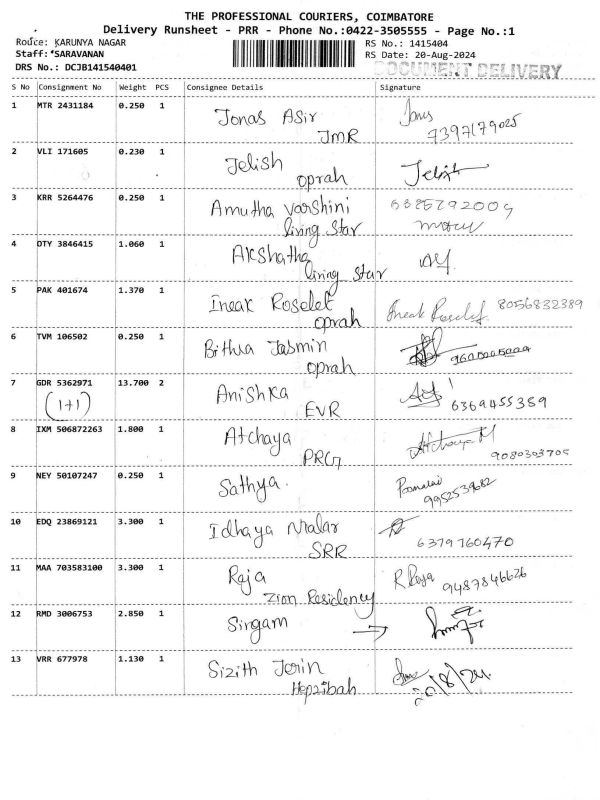 THE PROFESSIONAL COURIERS, COIMBATORE
Delivery Runsheet - PRR - Phone No.:0422-3505555 - Page No.:1
Route: KARUNYA NAGAR
RS No.: 1415404
Staff: SARAVANAN
RS Date: 20-Aug-2024
DRS No.: DCJB141540401
DOCUMENT DELIVERY
S No Consignment No Weight PCS Consignee Details Signature
1 MTR 2431184 0.250 1 Jonas Asir
JMR 7397179025
2 VLI 171605 0.230 1 Jelish Jelish
oprah
3 KRR 5264476 0.250 1 Amutha varshini
living star
4 OTY 3846415 1.060 1 Akshatha
living star
5 PAK 401674 1.370 1 Ineak Roselet Ineak Roselet 8056832389
oprah
6 TVM 106502 0.250 1 Bithra Jasmin
oprah
7 GDR 5362971 13.700 2 Anishka
(1+1) EVR 6369455359
8 IXM 506872263 1.800 1 Atchaya Atchaya M
PRG 9080303705
9 NEY 50107247 0.250 1 Sathya.
9952539682
10 EDQ 23869121 3.300 1 Idhaya Malar
SRR 6379760470
11 MAA 703583100 3.300 1 Raja R Raja 9487846626
Zion Residency
12 RMD 3006753 2.850 1 Sirgam →
13 VRR 677978 1.130 1 Sizith Jerin
Hepzibah 20/8/24